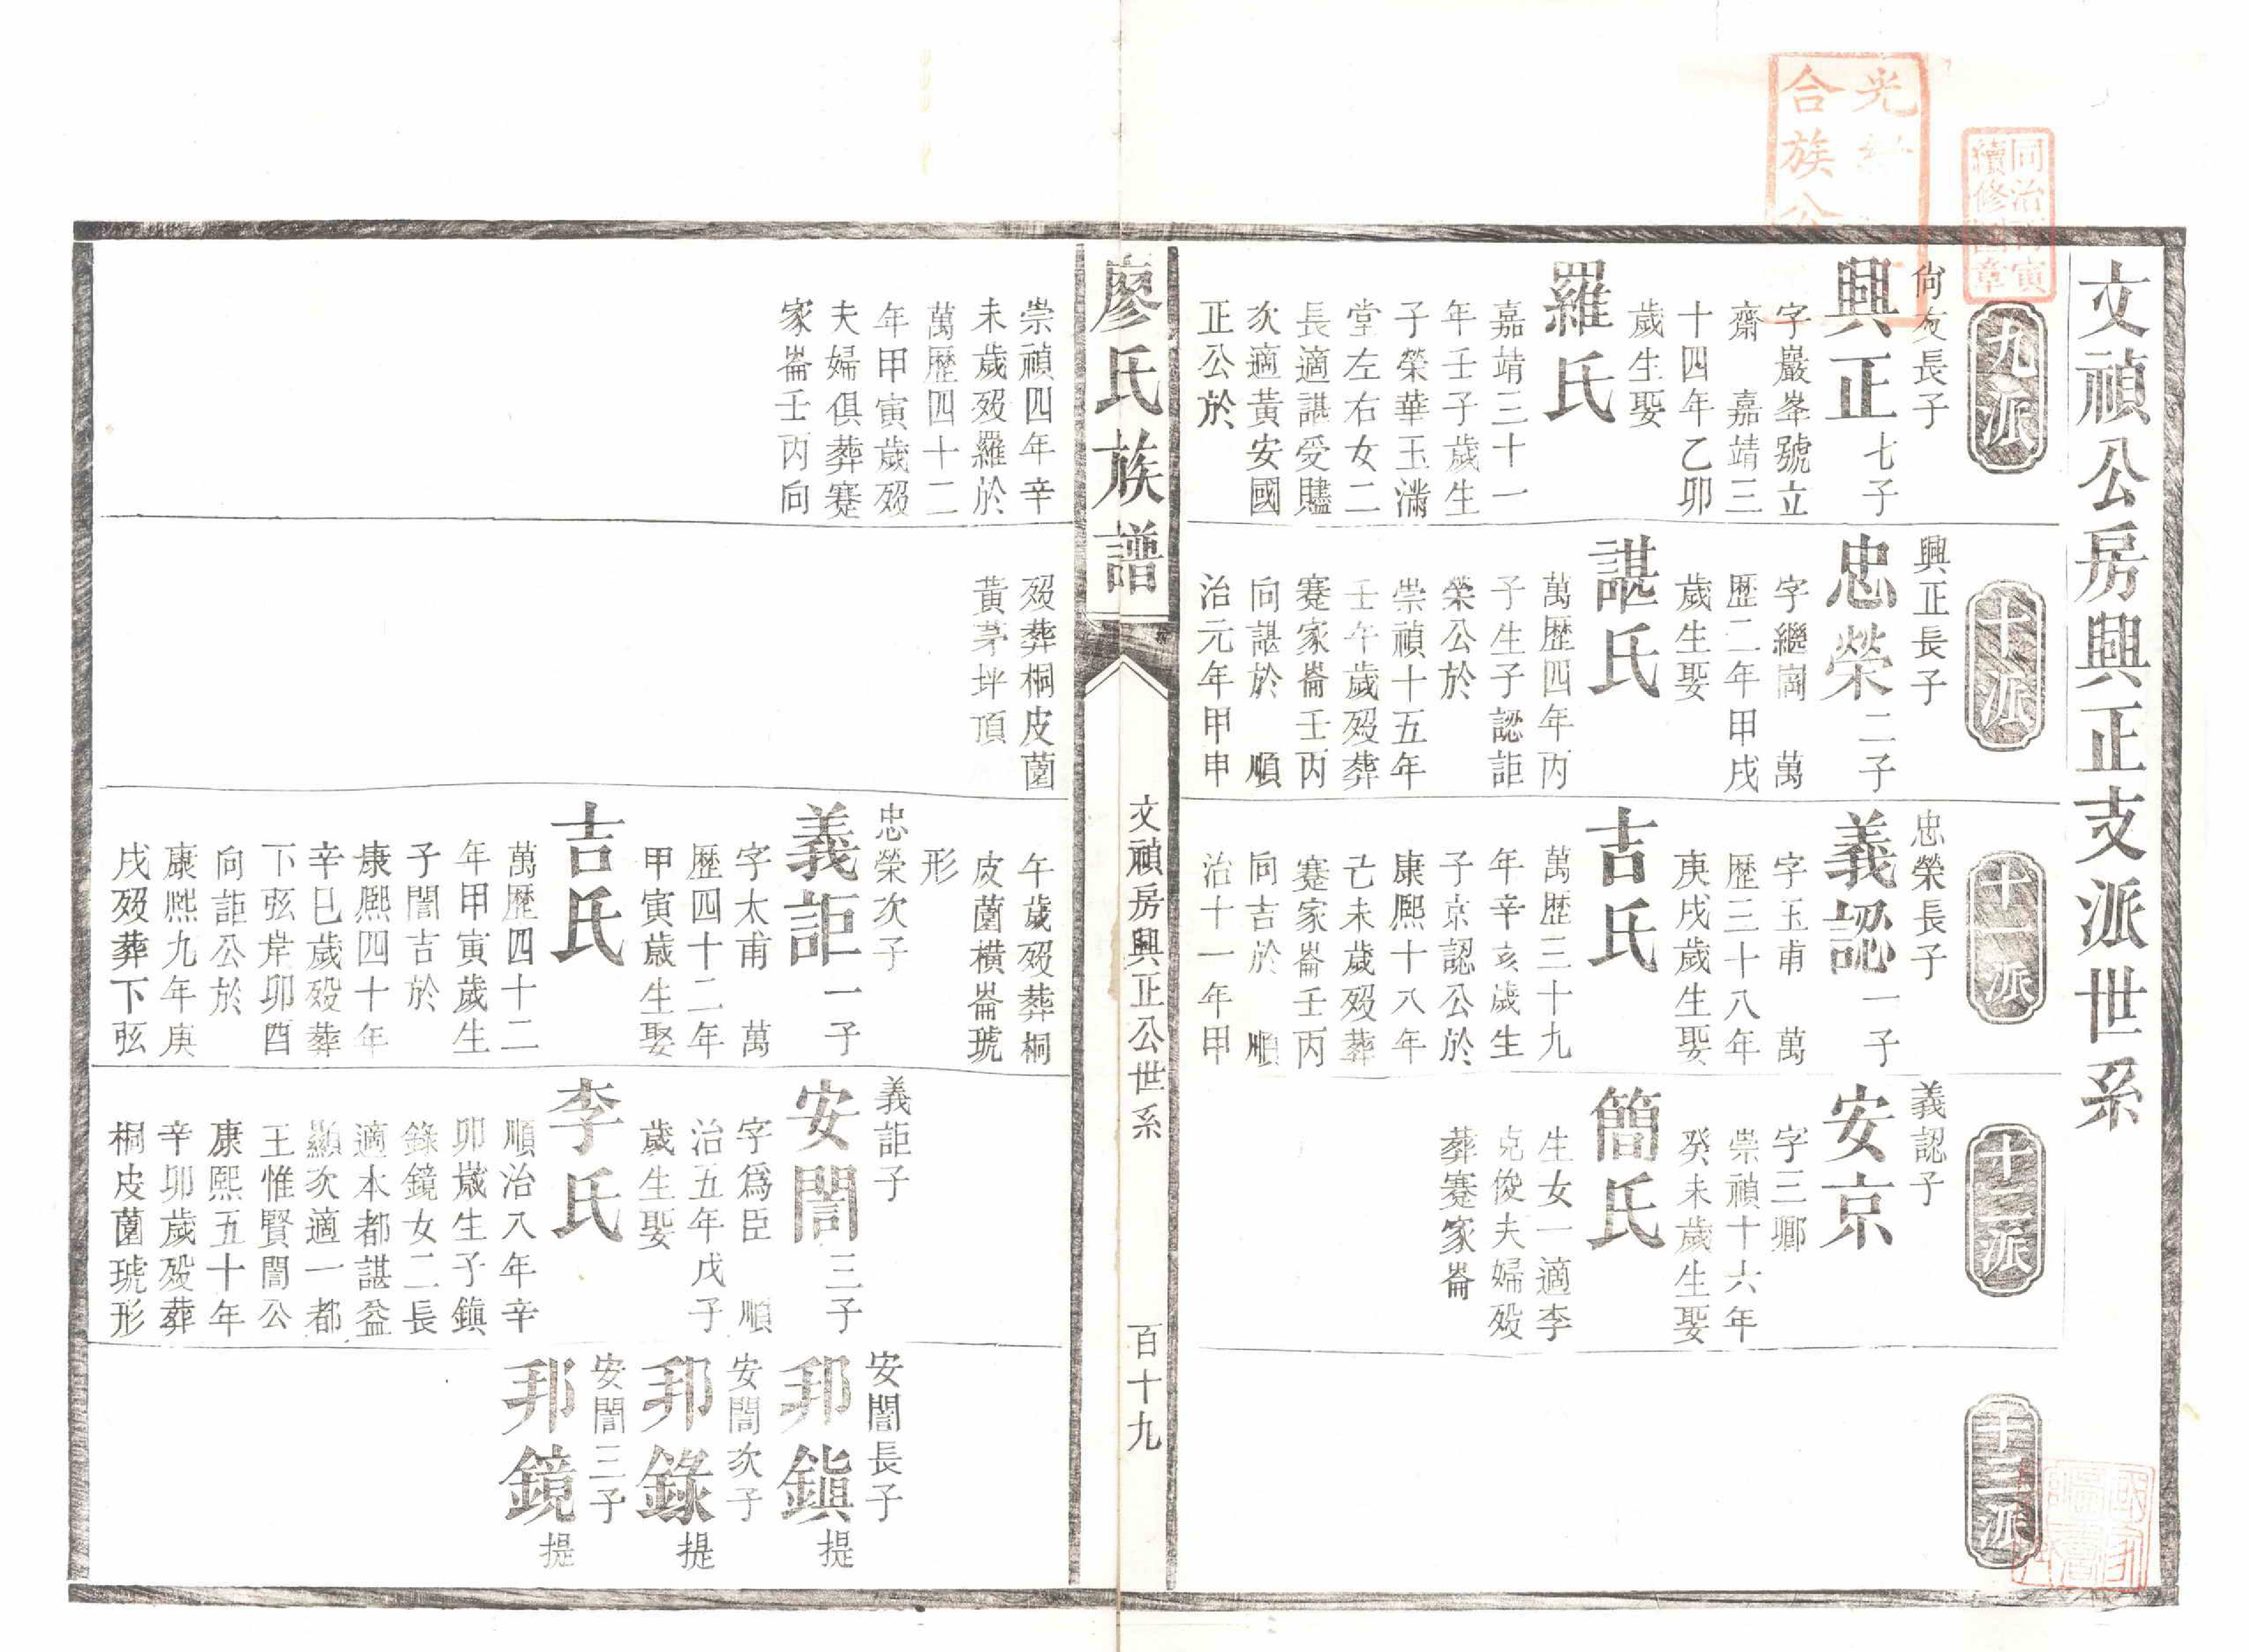 文禎公房興正支派世系
九派
尙友長子
興正
七子
字巖峯號立
齋　嘉靖三
十四年乙卯
歲生娶
羅氏
嘉靖三十一
年壬子歲生
子榮華玉滿
堂左右女二
長適諶受賰
次適黃安國
正公於
崇禎四年辛
未歲歿羅於
萬歷四十二
年甲寅歲歿
夫婦俱葬蹇
家崙壬丙向
十派
興正長子
忠榮
二子
字繼崗　萬
歷二年甲戌
歲生娶
諶氏
萬歷四年丙
子生子認詎
榮公於
崇禎十五年
壬午歲歿葬
蹇家崙壬丙
向諶於　順
治元年甲申
歿葬桐皮薗
黃茅坪頂
十一派
忠榮長子
義認
一子
字玉甫　萬
歷三十八年
庚戌歲生娶
吉氏
萬歷三十九
年辛亥歲生
子京認公於
康熙十八年
己未歲歿葬
蹇家崙壬丙
向吉於　順
治十一年甲
午歲歿葬桐
皮薗橫崙琥
形
忠榮次子
義詎
一子
字太甫　萬
歷四十二年
甲寅歲生娶
吉氏
萬歷四十二
年甲寅歲生
子誾吉於
康熙四十年
辛巳歲歿葬
下弦岸卯酉
向詎公於
康熙九年庚
戌歿葬下弦
十二派
義認子
安京
字三鄉
崇禎十六年
癸未歲生娶
簡氏
生女一適李
克俊夫婦歿
葬蹇家崙
義詎子
安誾
三子
字爲臣　順
治五年戊子
歲生娶
李氏
順治八年辛
卯歲生子鎭
錄鏡女二長
適本都諶益
顯次適一都
王惟賢誾公
康熙五十年
辛卯歲歿葬
桐皮薗琥形
十三派
安誾長子
邦鎭
提
安誾次子
邦錄
提
安誾三子
邦鏡
提
廖氏族譜
文禎房興正公世系
百十九
光緖
合族公
同治寅
續修圖章